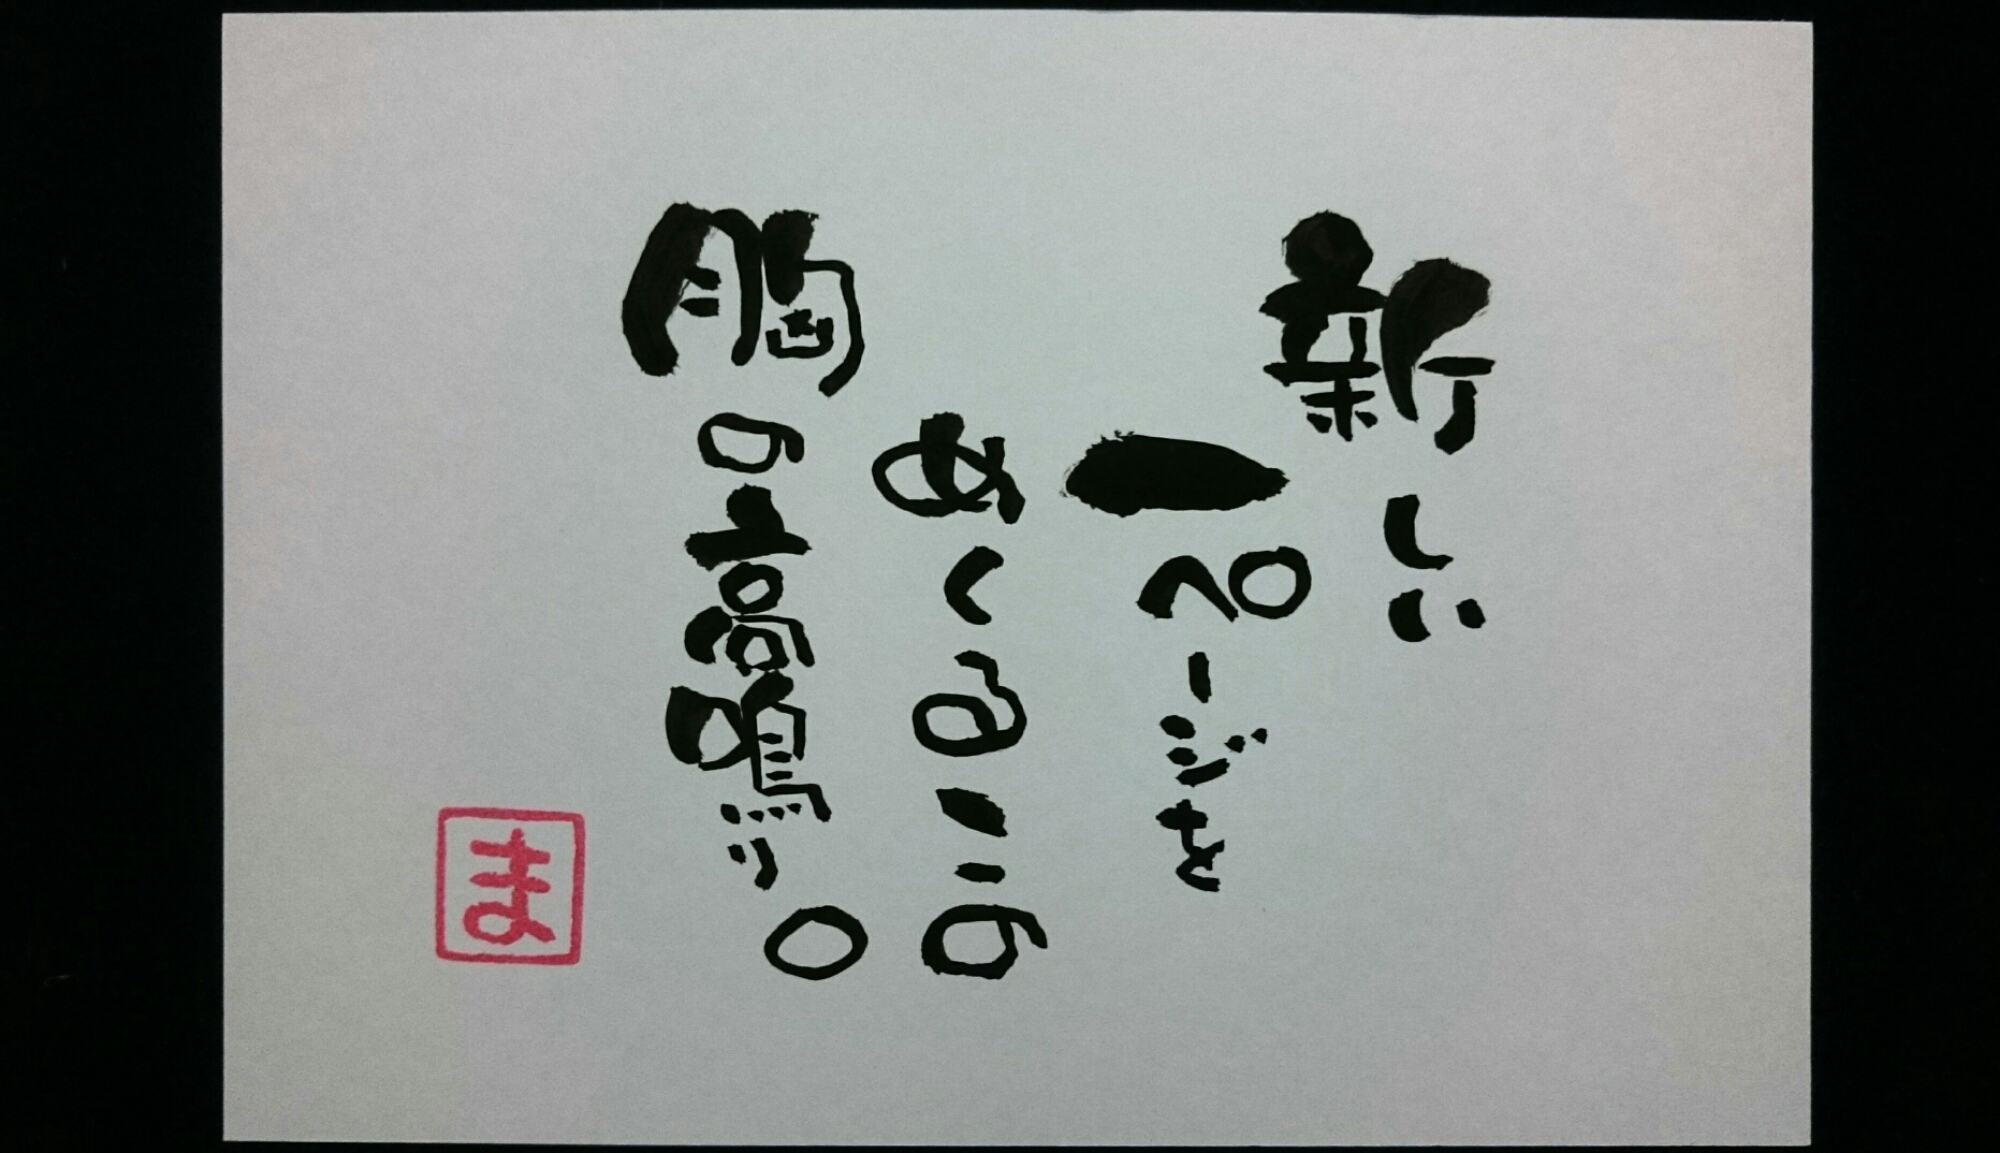 新しい
一ページを
めくるこの
胸の高鳴り。
ま